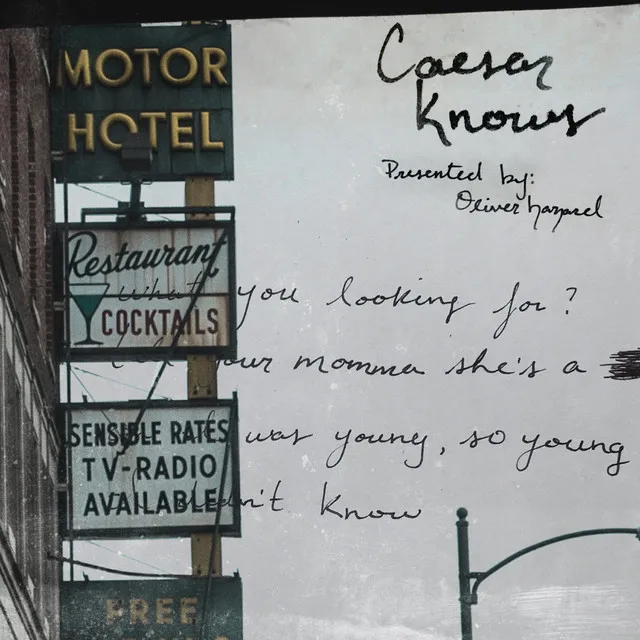 MOTOR
HOTEL
Restaurant
COCKTAILS
SENSIBLE RATES
TV-RADIO
AVAILABLE
FREE
Caesar
Knows
Presented by:
Oliver
What you looking for?
your momma she's a
was young, so young
know